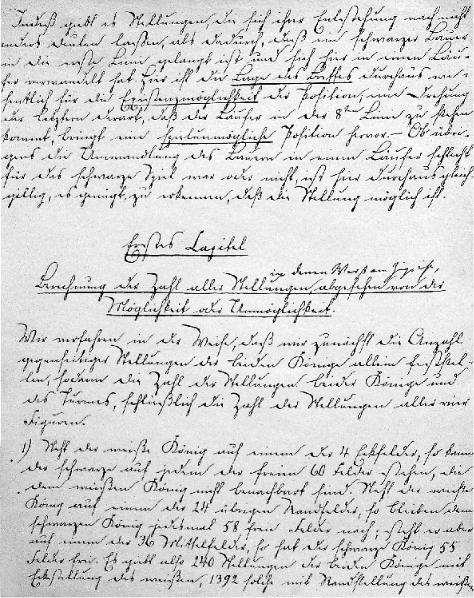 Indeß giebt es Stellungen, die sich ihrer Entstehung nach nicht
anders deuten lassen, als dadurch, daß ein schwarzer Bauer
in die erste Linie gelangt ist und sich hier in einen Läu-
fer verwandelt hat. Hier ist die Lage des Brettes durchaus we-
sentlich für die Existenzmöglichkeit der Position, eine Drehung
des letztern derart, daß der Läufer in der 8ten Linie zu stehen
kommt, bringt eine spielunmögliche Position hervor. — Ob übri-
gens die Umwandlung des Bauern in einen Läufer schlecht
für das schwarze Spiel war oder nicht, ist hier durchaus gleich-
gültig, es genügt, zu erkennen, daß die Stellung möglich ist.
Erstes Capitel
Berechnung der Zahl aller Stellungen, in denen Weiß am Zuge ist, abgesehen von der
Möglichkeit oder Unmöglichkeit.
Wir verfahren in der Weise, daß wir zunächst die Anzahl
gegenseitiger Stellungen der beiden Könige allein feststel-
len, sodann die Zahl der Stellungen beider Könige und
des Turmes, schließlich die Zahl der Stellungen aller vier
Figuren.
1) Steht der weiße König auf einem der 4 Eckfelder, so kann
der schwarze auf jedem der freien 60 Felder stehen, die
dem weißen König nicht benachbart sind. Steht der weiße
König auf einem der 24 übrigen Randfelder, so bleiben dem
schwarzen König jedesmal 58 freie Felder noch; steht er aber
auf einem der 36 Mittelfelder, so hat der schwarze König 55
Felder frei. Es giebt also 240 Stellungen der beiden Könige mit
Eckstellung des weißen, 1392 solche mit Randstellung des weißen